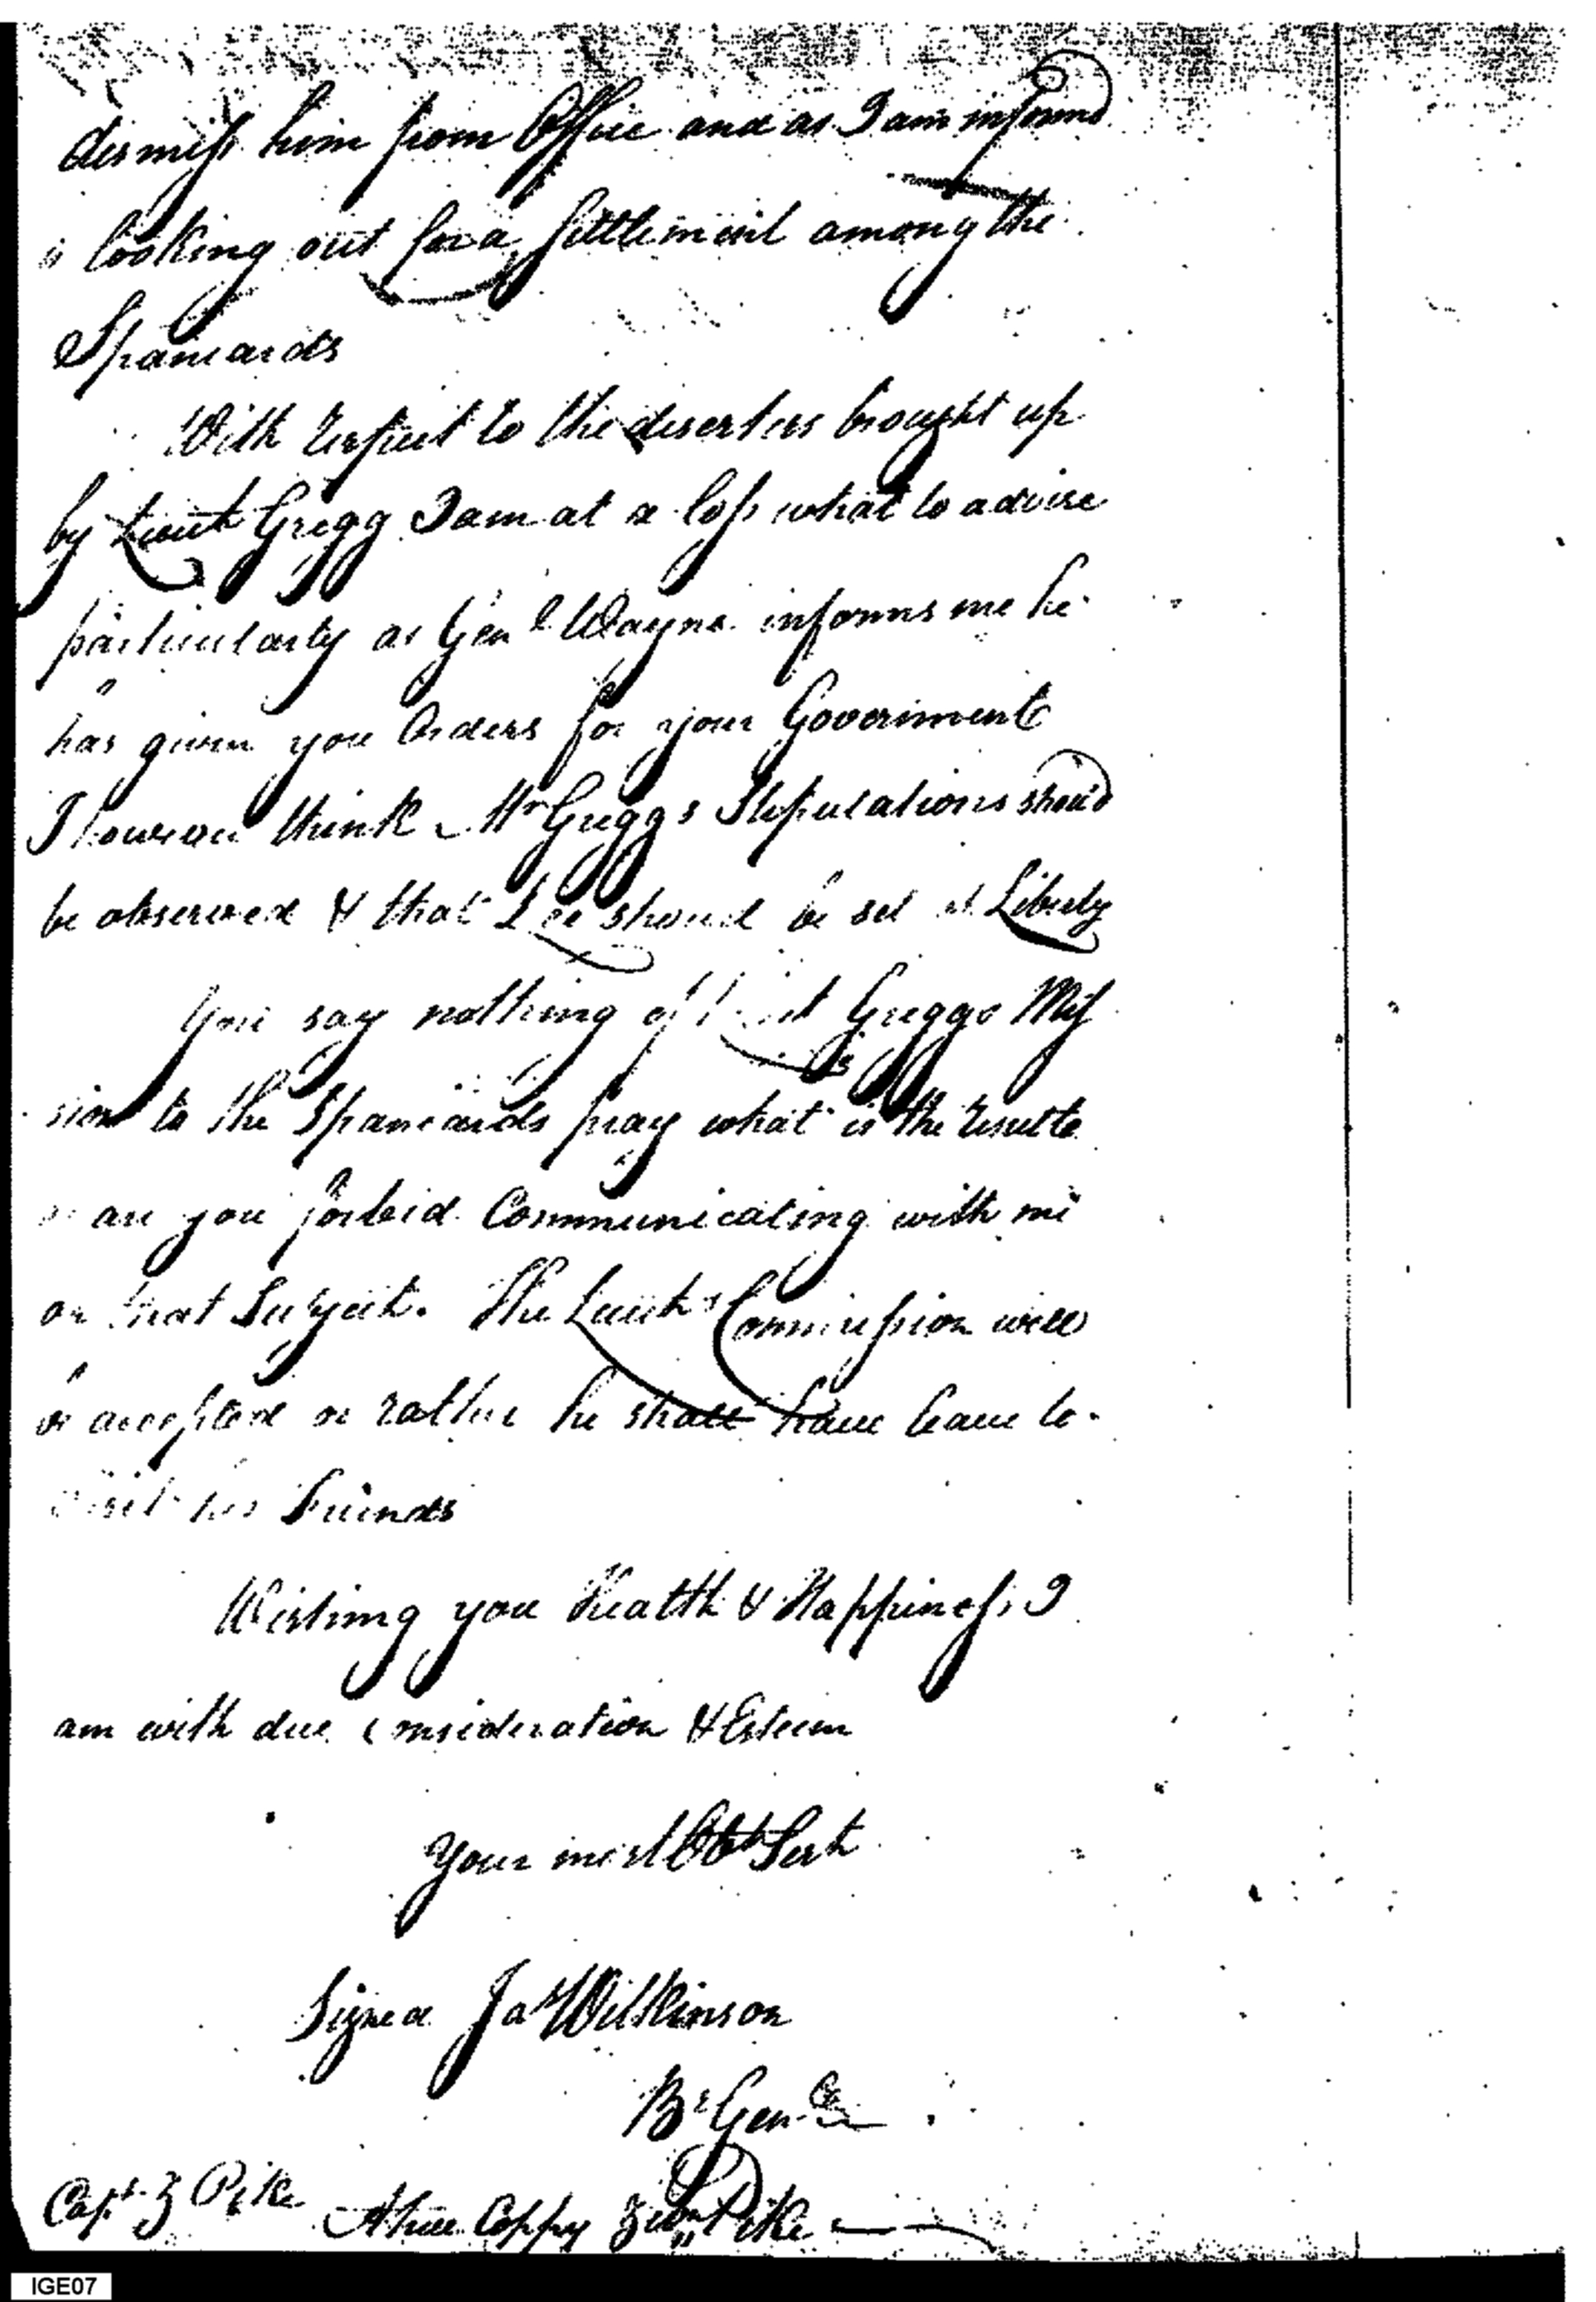 dismiss him from Office and as I am informd
is looking out for a settlement among the
Spaniards
With respect to the deserters brought up
by Lieut Gregg I am at a loss what to advise
particularly as Genl Wayne informs me he
has given you Orders for your Goveriment
I however think Mr Greggs Stipulations should
be observed & that Lee should be set at Liberty
You say nothing of Lieut Greggs Mis
sion to the Spaniards pray what is the result
or are you forbid Communicating with me
on that Subject. The Lieuts Commission will
be accepted or rather he shall have leave to
visit his Friends
Wishing you Health & Happiness I
am with due consideration & Esteem
Your most Obt Sert
Signed Jas Wilkinson
Br Genl
Capt Z Pike A true Coppy Zebn Pike
IGE07